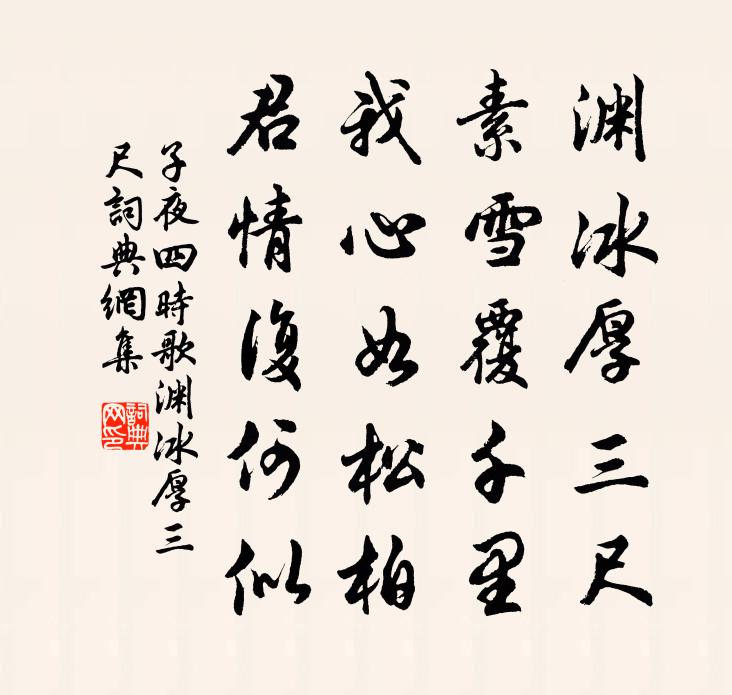 渊冰厚三尺
素雪覆千里
我心如松柏
君情復何似
子夜四時歌渊冰厚三
尺詞典網集
詞典网印